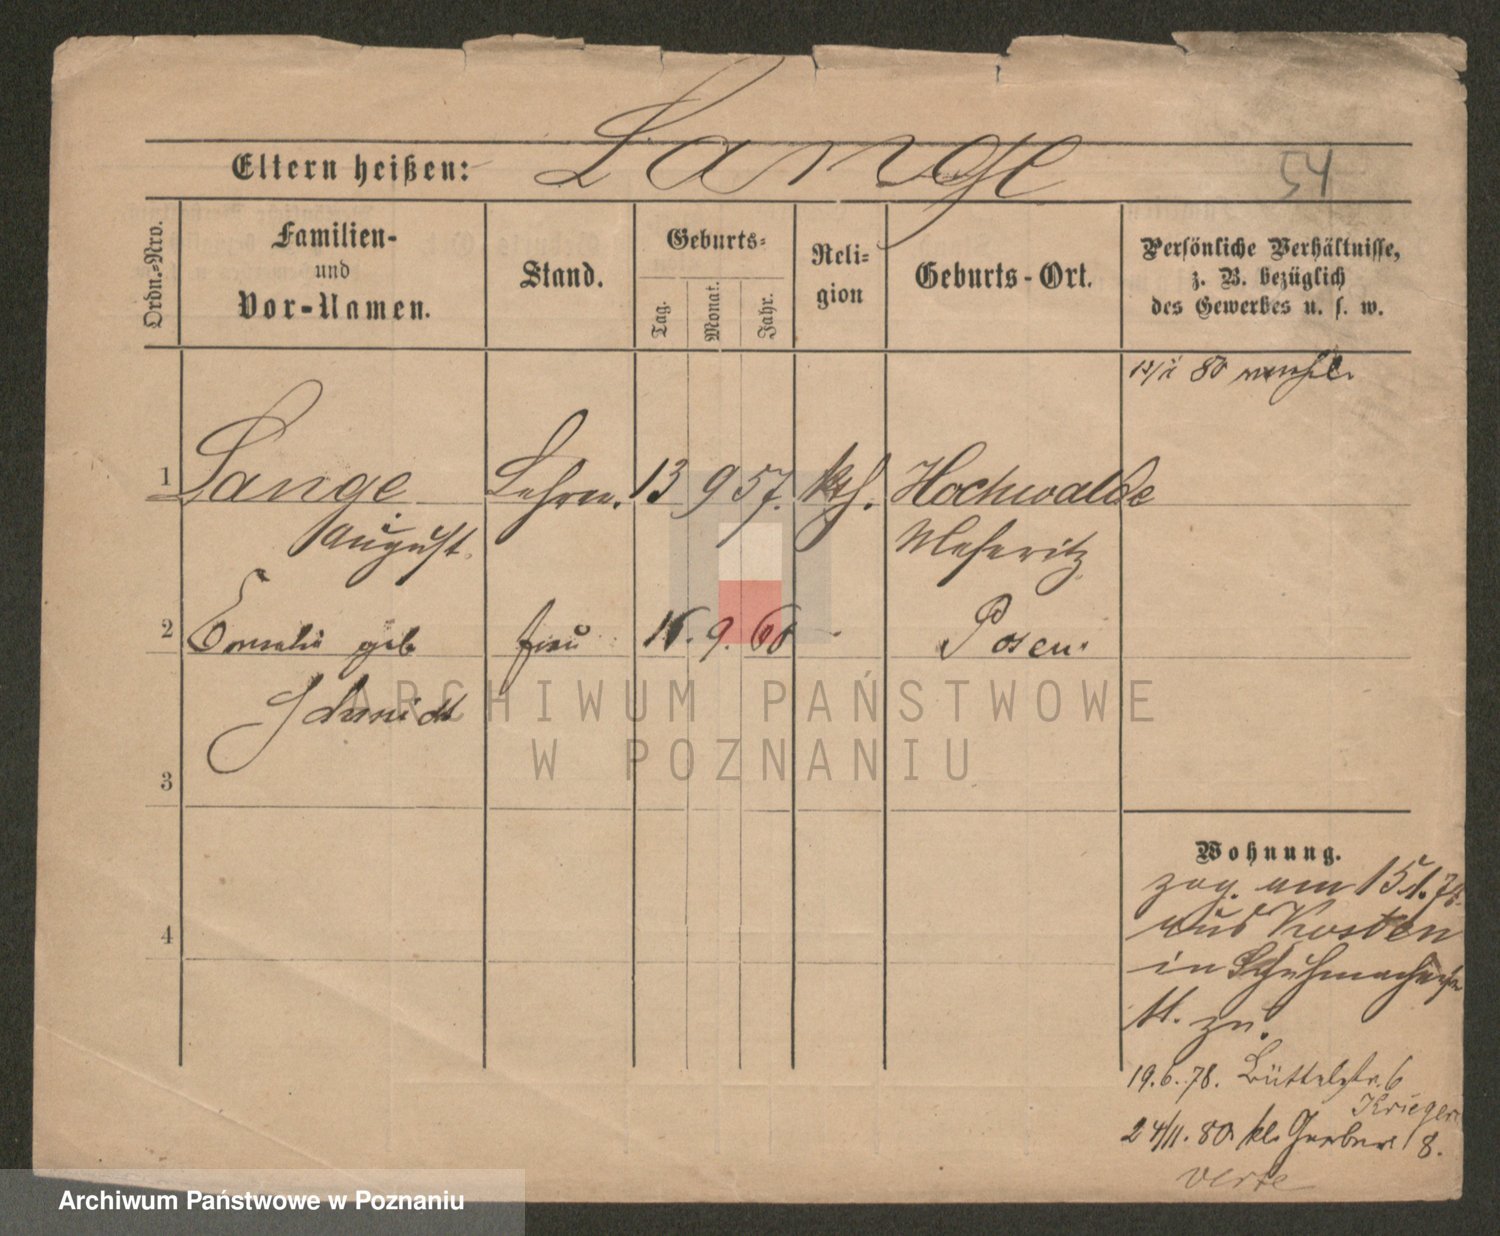 Lange
Eltern heißen:
54
Ordn.-Nro.
Familien-
und
Vor-Namen.
Stand.
Geburts-
Tag.
Monat.
Jahr.
Reli-
gion
Geburts-Ort.
Persönliche Verhältnisse,
z. B. bezüglich
des Gewerbes u. s. w.
80
1 Lange Lehrer. 13 9 57. kth. Hochwalde
August. Meseritz
2 geb Frau 9. 60 Posen.
Schmidt
3
4
Wohnung.
zog. am 15.1.78.
aus Kosten
in
11. zu.
19.6.78. Büttelstr. 6
Krieger
24/11. 80 kl. Gerber 8.
verte
ARCHIWUM PAŃSTWOWE
W POZNANIU
Archiwum Państwowe w Poznaniu